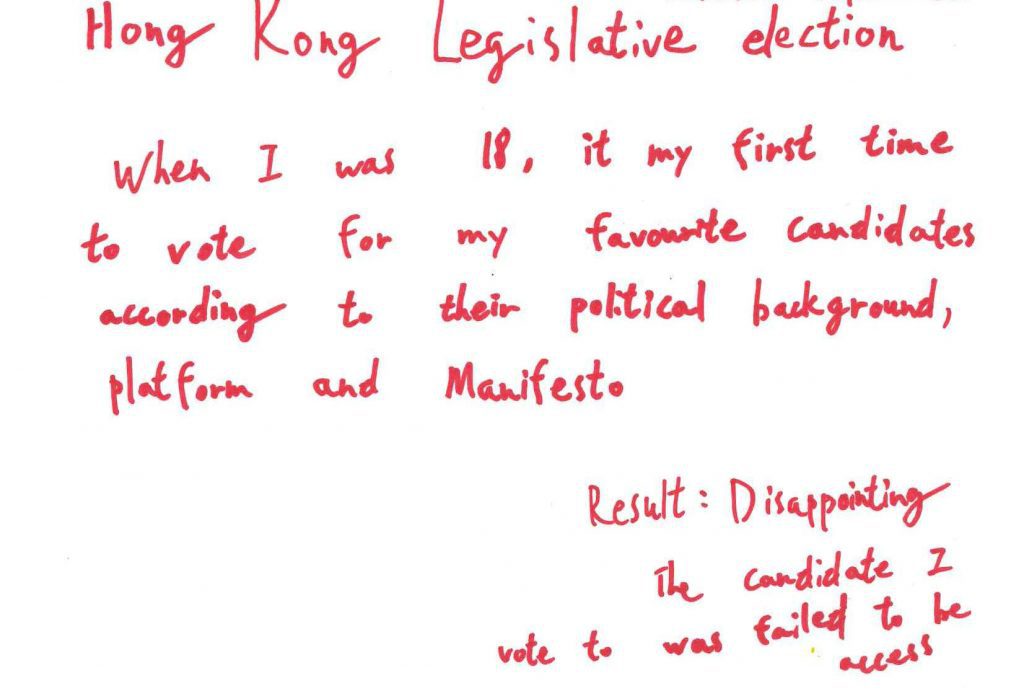 Hong Kong Legislative election
When I was 18, it my first time
to vote for my favourite candidates
according to their political background,
platform and Manifesto
Result: Disappointing
The candidate I
vote to was failed to be
access